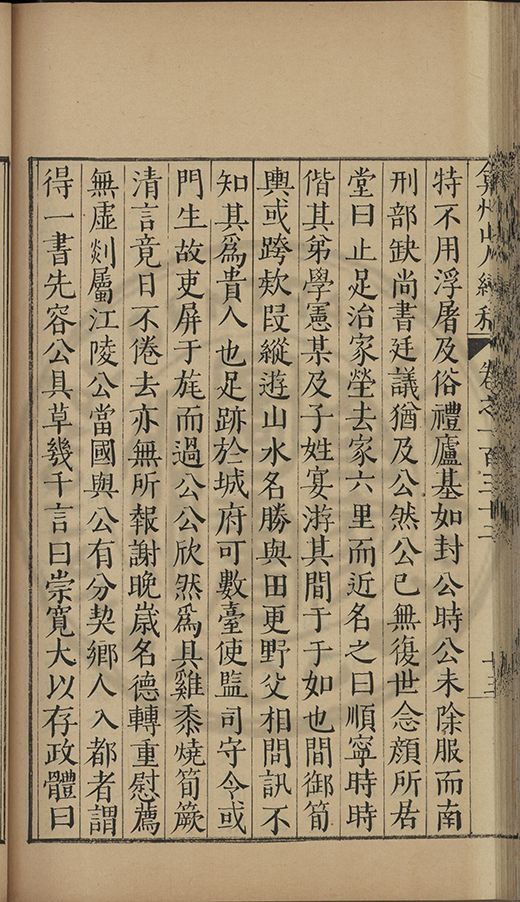 弇州山人續稿 卷之一百三十二 十三
特不用浮屠及俗禮廬墓如封公時公未除服而南
刑部缺尚書廷議猶及公然公已無復世念顏所居
堂曰止足治家塋去家六里而近名之曰順寧時時
偕其弟學憲某及子姓宴游其間于于如也間御筍
輿或跨款段縱遊山水名勝與田更野父相問訊不
知其為貴人也足跡於城府可數臺使監司守令或
門生故吏屏于旄而過公公欣然為具雞黍燒筍蕨
清言竟日不倦去亦無所報謝晚歲名德轉重慰薦
無虛剡屬江陵公當國與公有分契鄉人入都者謂
得一書先容公具草幾千言曰崇寬大以存政體曰